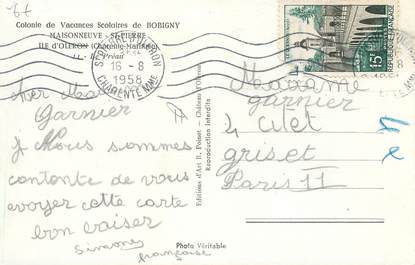 67
Colonie de Vacances Scolaires de BOBIGNY
MAISONNEUVE - St-PIERRE
ILE d'OLERON (Charente-Maritime)
Le Préau
ST PIERRE D'OLERON
16-8
1958
CHARENTE MME
15F
cher Ma
garnier
j Nous sommes
contante de vous
evoyer cette carte
bon baiser
Simone
françoise
Editions d'Art R. Poinot - Château d'Oléron
Reproduction interdite
Photo Véritable
Madame
garnier
4 citet
griset
Paris 11